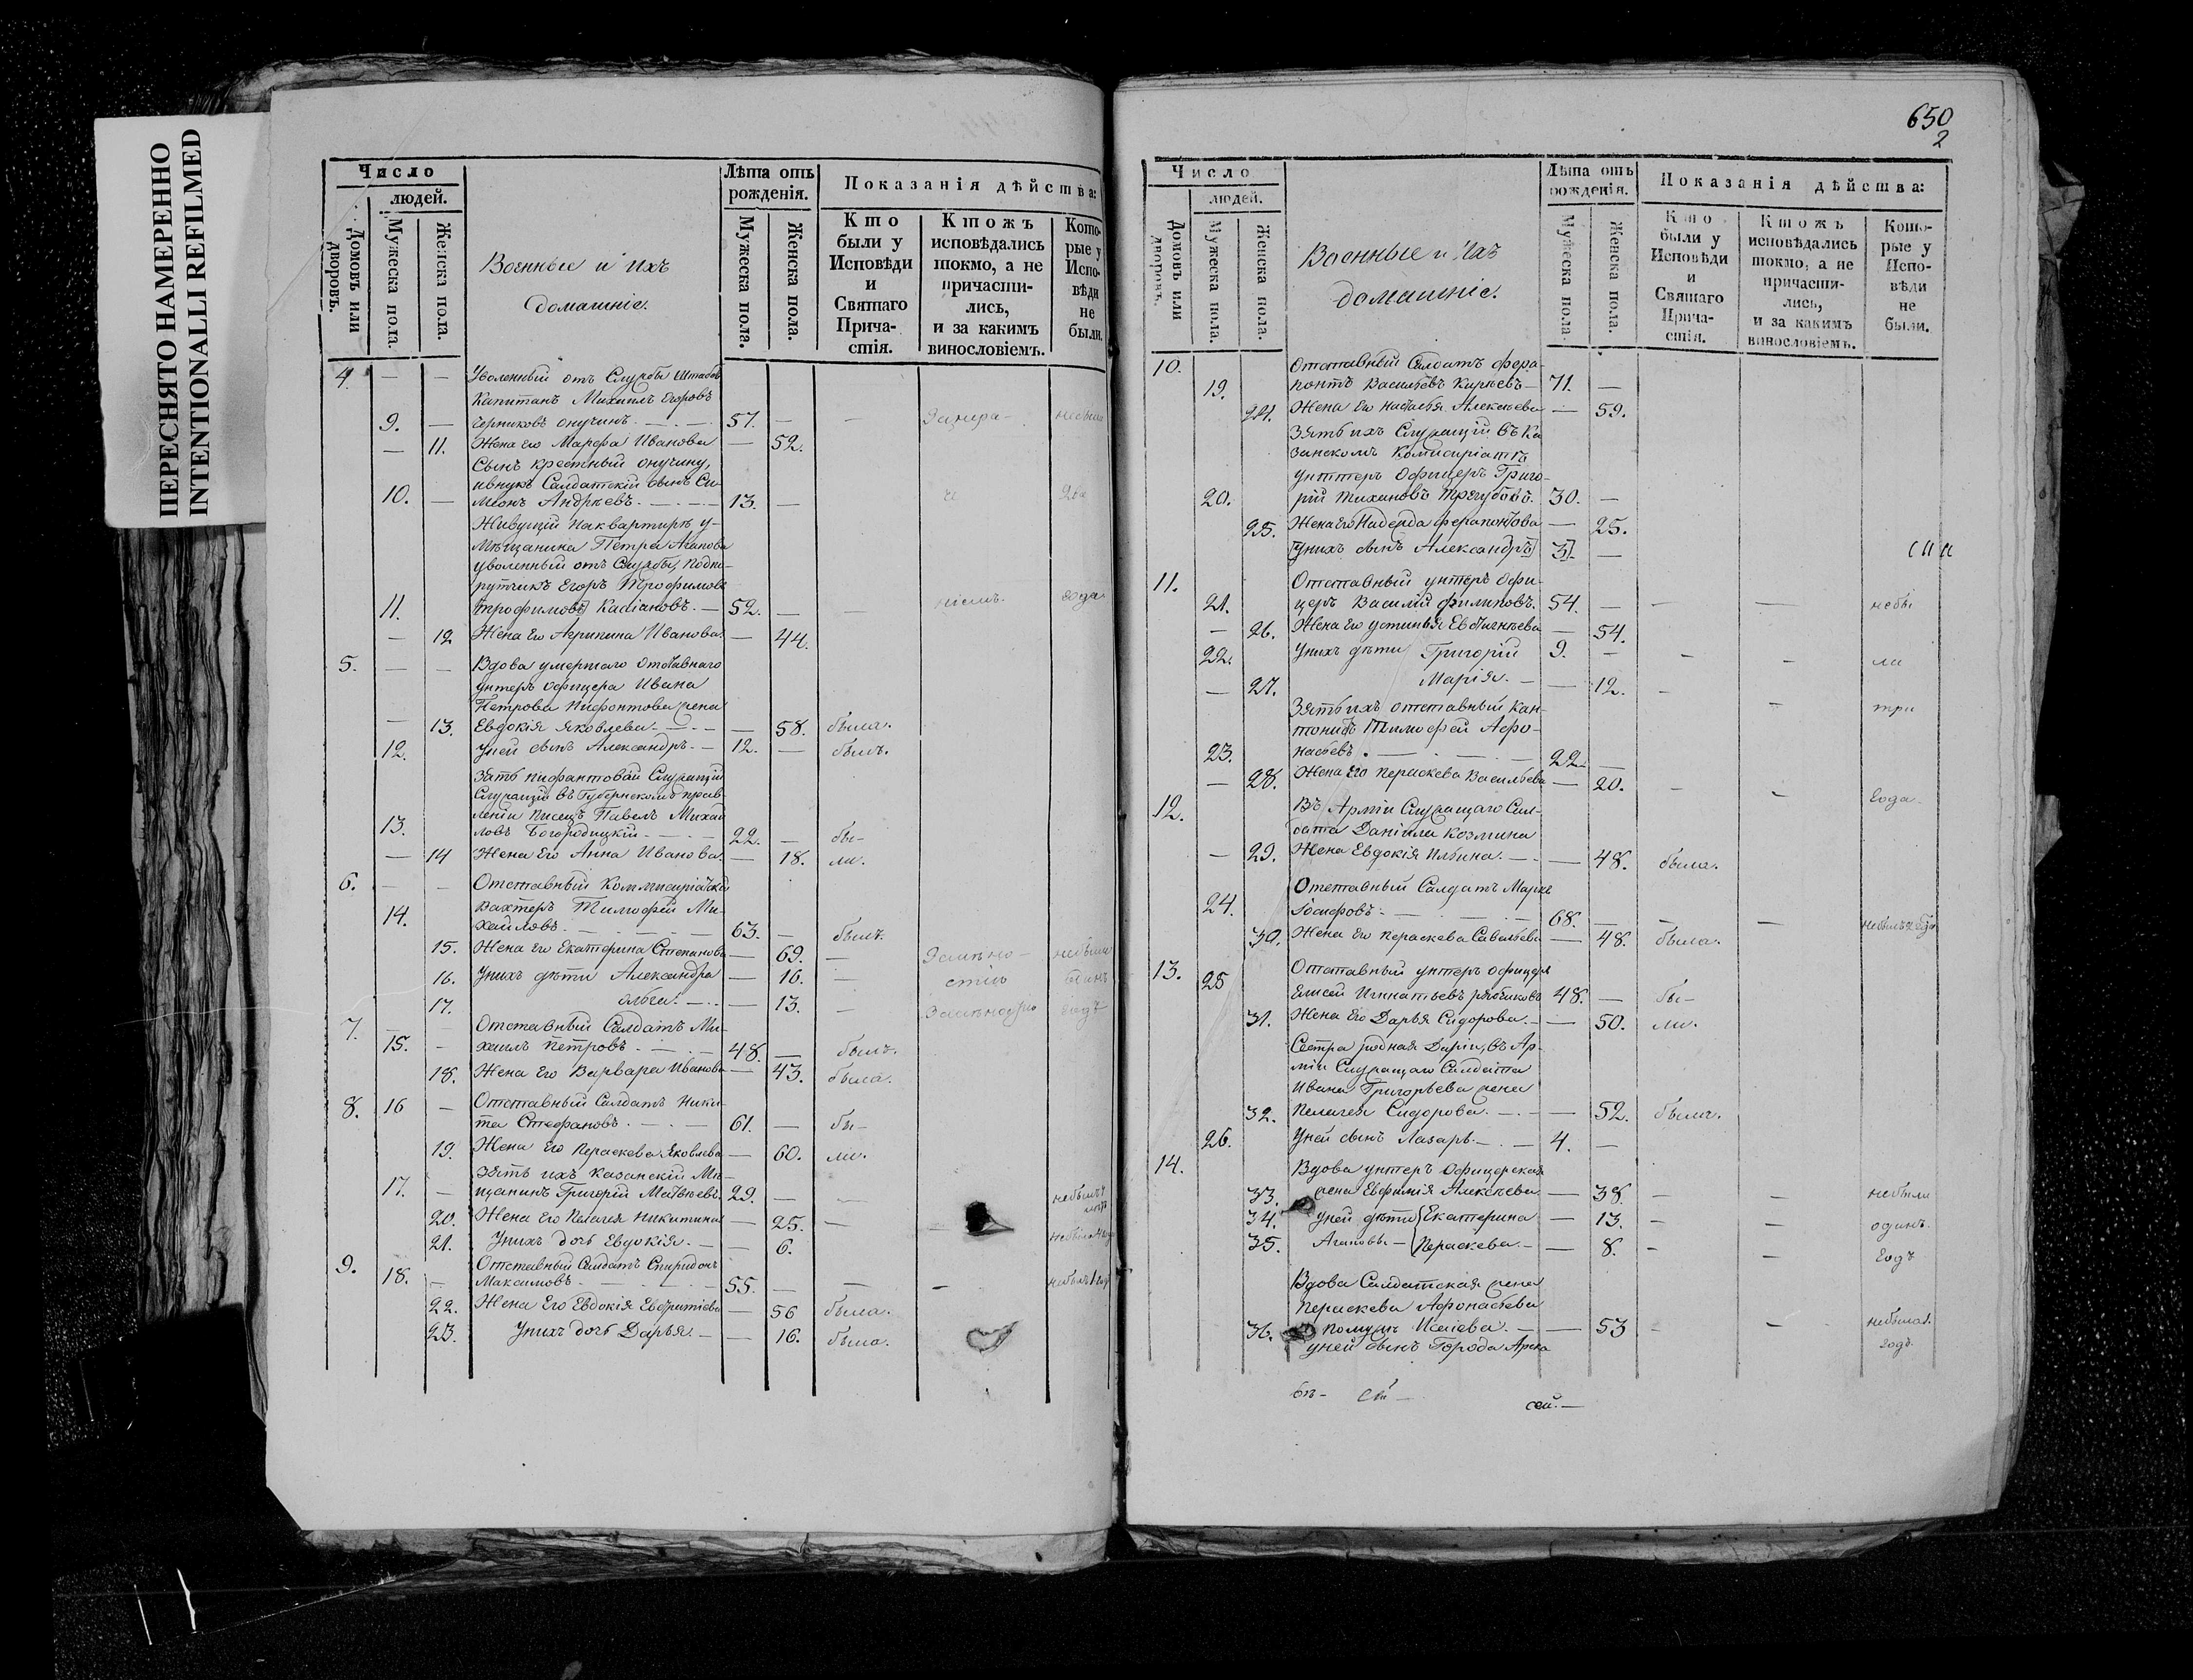 ПЕРЕСНЯТО НАМЕРЕННО
INTENTIONALLI REFILMED
Число
людей.
Домовъ или дворовъ.
Мужеска пола.
Женска пола.
Военные и ихъ
домашніе.
Лѣта отъ рожденія.
Мужеска пола.
Женска пола.
Показанія дѣйства:
Кто были у Исповѣди и Святаго Причастія.
Ктожъ исповѣдались токмо, а не причастились, и за какимъ винословіемъ.
Которые у Исповѣди не были.
4. — — Уволенный отъ Службы Штабсъ
Капитанъ Михаилъ Егоровъ
9. — 57. — —
— 11. Жена его Марфа Иванова — 52.
Сынъ крестный
Салдатскій сынъ Си-
10. — мионъ Андреевъ. — 13. — два
Живущій на квартирѣ у
Мѣщанина Петра Агапова
уволенный отъ Службы, Подпо-
рутчикъ Егоръ Трофимовъ
11. трофимовъ Касіановъ. — 52. — — ніемъ. года
— 12 Жена его Агрипина Иванова. — 44.
5. — — Вдова умершаго отставнаго
унтеръ офицера Ивана
Петрова Нифонтова жена
— 13. Евдокія Яковлева. — — 58. была.
12. У ней сынъ Александръ. — 12. — былъ.
Зять Служащій
Служащій въ Губернскомъ прав-
леніи писецъ Павелъ Михай
13. ловъ Богородицкій — 22. — бы-
— 14 Жена его Анна Иванова. — 18. ли.
6. — — Отставный
14. Вахтеръ Тимофей Ми-
хайловъ. — 63. — былъ.
15. Жена его Екатерина Степанова — 69. — небыли
16. У нихъ дѣти Александра — 16. — одинъ
17. Ольга. — 13. — годъ
7. — — Отставный Салдатъ Ми-
15. — хаилъ Петровъ. — 48. — былъ.
18. Жена его Варвара Иванова — 43. была.
8. 16 — Отставный Салдатъ Ники-
та Стефановъ. — 61. — бы-
19. Жена его Параскева Яковлева — 60. ли.
Зять ихъ Казанскій Мѣ-
17. — щанинъ Григорій Матвѣевъ. 29. — — небылъ
20. Жена его Пелагея Никитина — 25. —
21. У нихъ дочь Евдокія. — 6.
9. Отставный Салдатъ Спиридонъ
18. — Максимовъ. — 55. — — — небылъ 1 годъ
22. Жена его Евдокія — 56 была.
23. У нихъ дочь Дарья. — 16. была.
650
2
Число
людей.
Домовъ или дворовъ.
Мужеска пола.
Женска пола.
Военные и ихъ
домашніе.
Лѣта отъ рожденія.
Мужеска пола.
Женска пола.
Показанія дѣйства:
Кто были у Исповѣди и Святаго Причастія.
Ктожъ исповѣдались токмо, а не причастились, и за какимъ винословіемъ.
Которые у Исповѣди не были.
10. Отставный Салдатъ Фера-
19. понтъ Васильевъ Карѣевъ — 71. —
24. Жена его Настасья Алексѣева — 59.
Зять ихъ Служащій въ Ка
занскомъ Комисиріатѣ
унттеръ Офицеръ Григо-
20. рій Тихановъ Трегубовъ. 30. —
25. Жена его Надежда Ферапонтова — 25.
У нихъ сынъ Александръ 3 —
11. Отставный унтеръ офи-
21. церъ Василій Филиповъ. 54. — — — небы
— 26. Жена его Устинья — 54.
22. У нихъ дѣти Григорій 9. — — — ли
— 27. Марія. — — 12. —
Зять ихъ отставный Кан- — три
тонистъ Тимофей Афо-
23. насьевъ. — 22 —
— 28. Жена его Параскева Васильева — 20. — — года.
12. Въ Арміи Служащаго Сал-
дата Даніила Козмина
— 29. Жена Евдокія Ильина. — — 48. была.
Отставный Салдатъ Марко
24. Іосифовъ. — 68. — — — небылъ 2 года
30. Жена его Параскева Савельева — 48. была.
13. 25 Отставный унтеръ офицеръ
Елисей Игнатьевъ 48. — бы-
31. Жена его Дарья Сидорова. — — 50. ли.
Сестра родная Дарьи, въ Ар-
міи Служащаго Салдата
Ивана Григорьева жена
32. Пелагея Сидорова. — — 52. была.
26. У ней сынъ Лазарь. — 4. —
14. Вдова унтеръ офицерская
33. жена Евфимія Алексѣева. — 38. — — небыли
34. У ней дѣти Екатерина — 13. — — одинъ
35. Агаповы — Параскева. — — 8. — — годъ
Вдова Салдатская жена
Параскева Афонасьева
36. Исаіева. — — 53 — — небыла 1.
У ней сынъ Города Арска годъ.